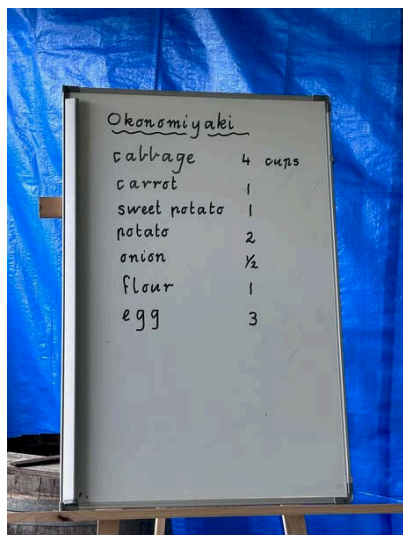 Okonomiyaki
cabbage 4 cups
carrot 1
sweet potato 1
potato 2
onion ½
flour 1
egg 3